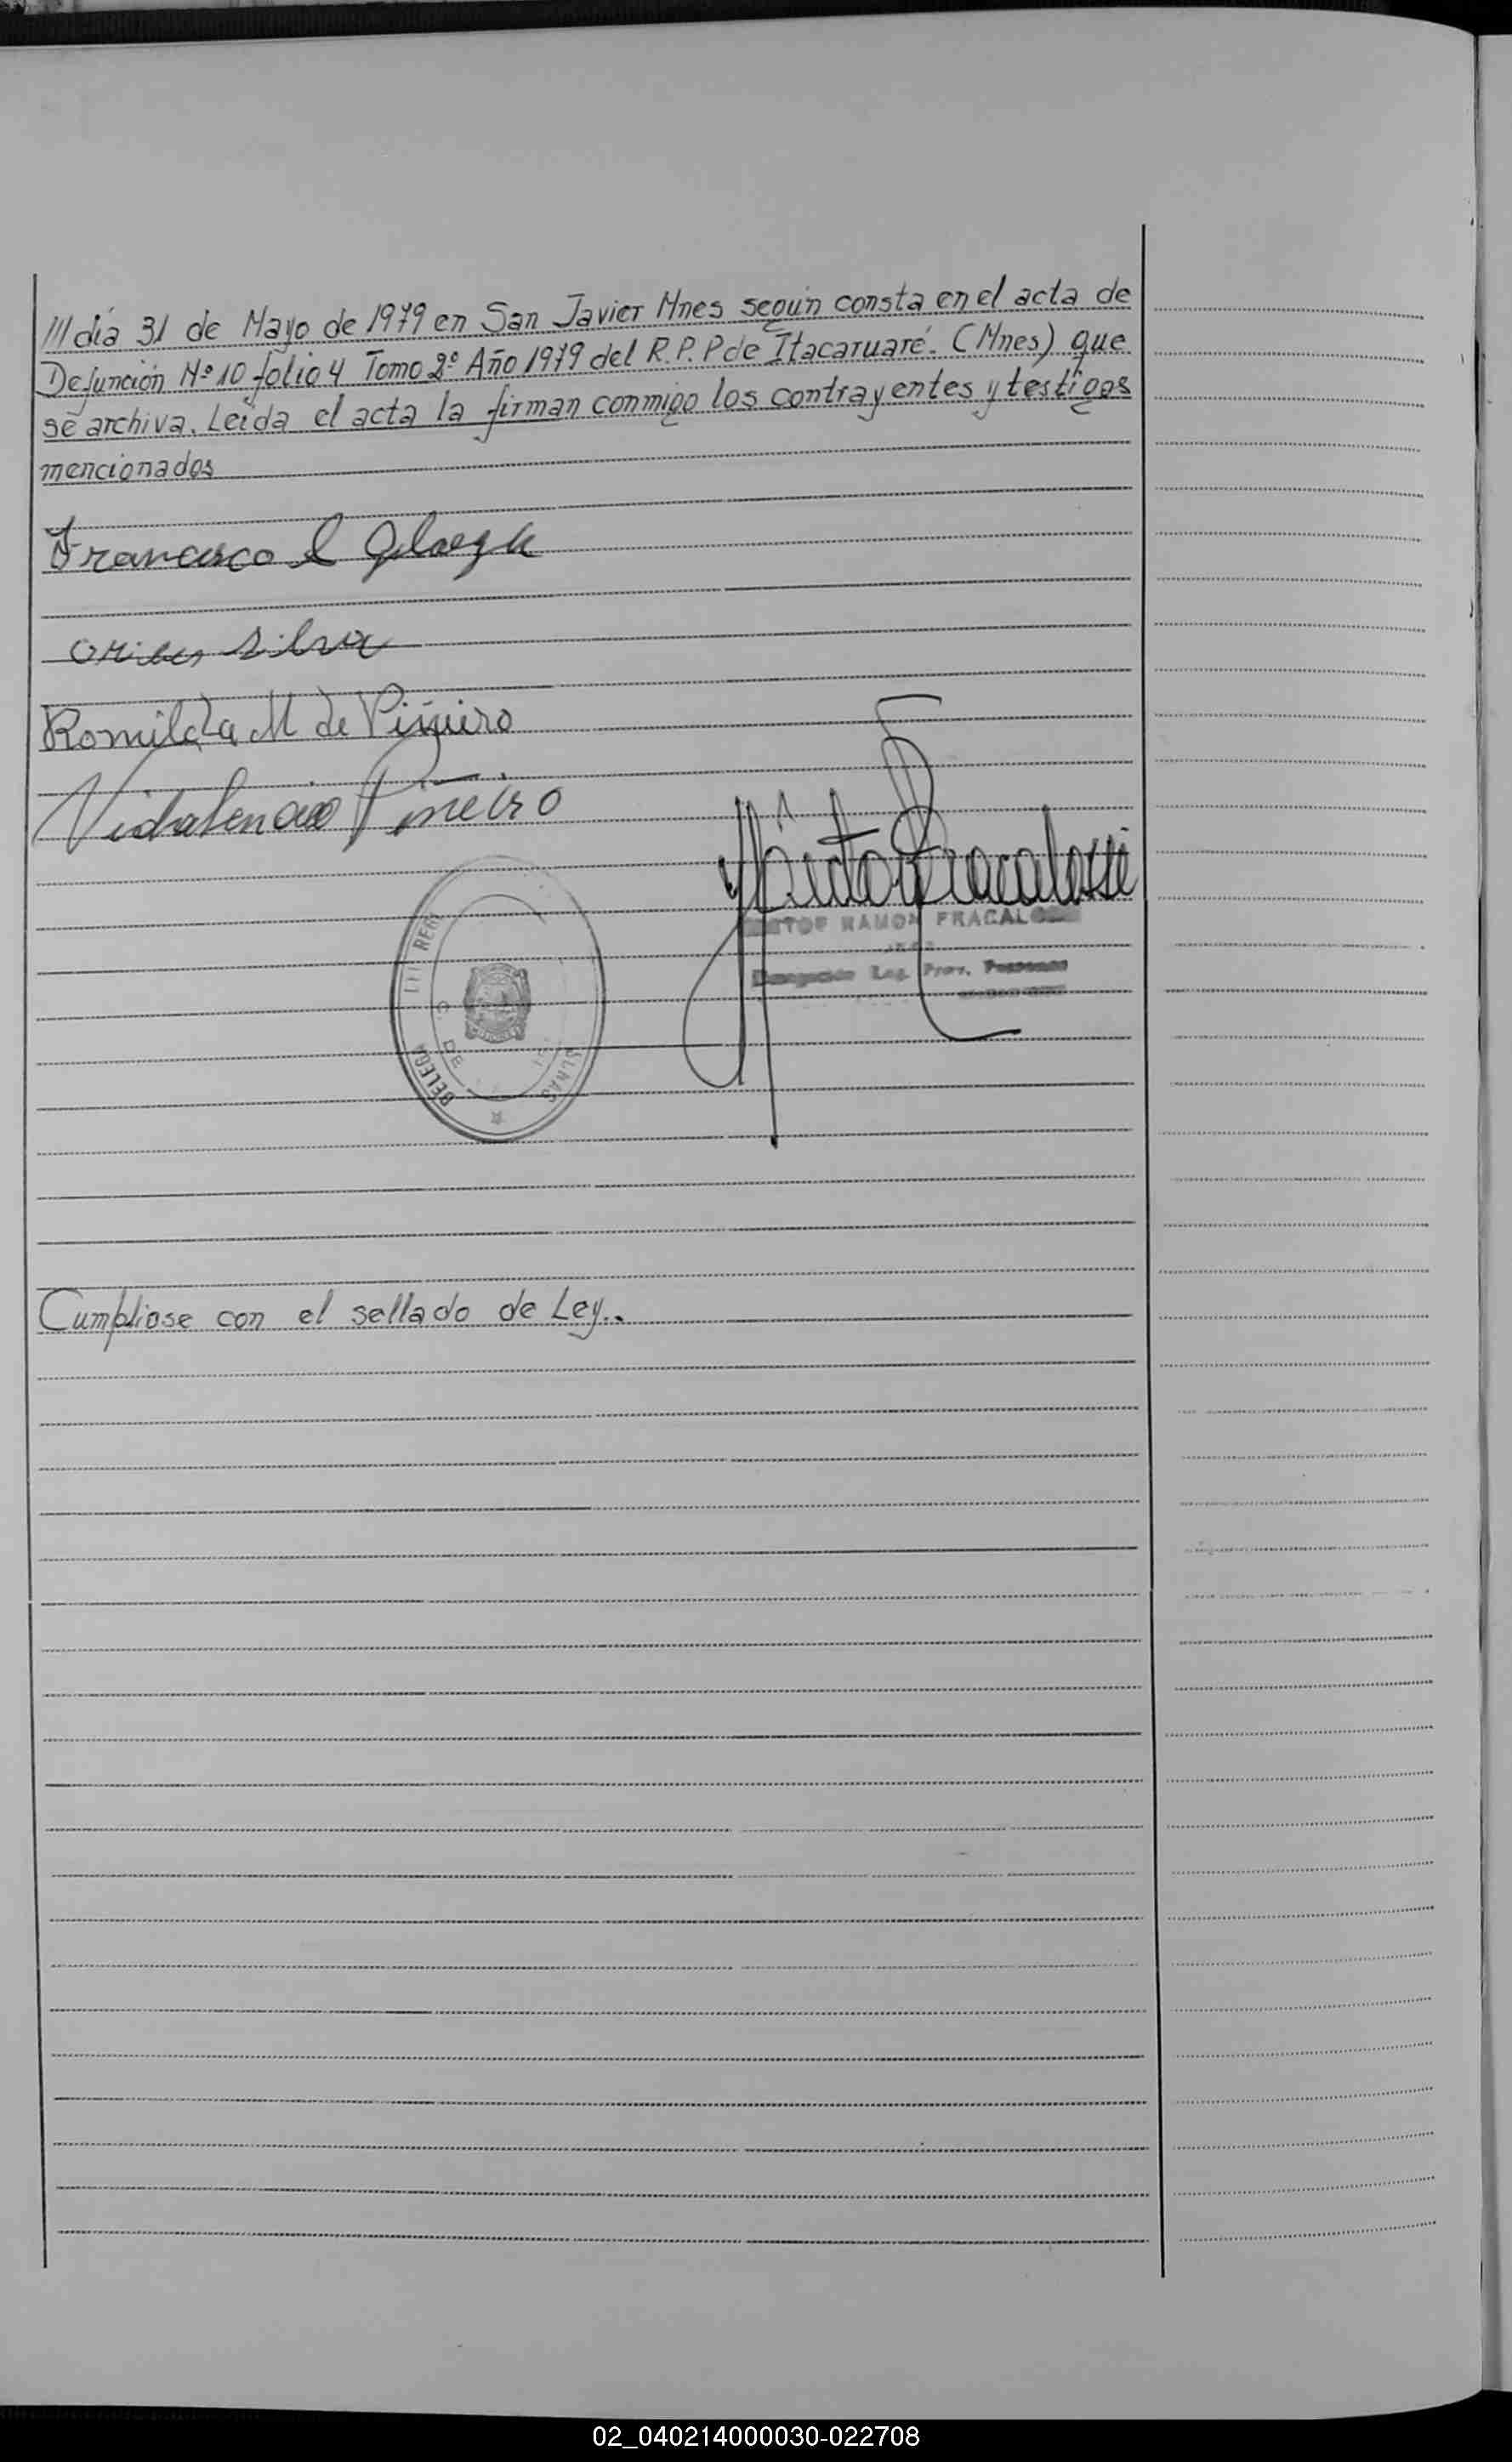 /// día 31 de Mayo de 1979 en San Javier Mnes según consta en el acta de
Defunción Nº 10 folio 4 Tomo 2º Año 1979 del R.P.P de Itacaruaré. (Mnes) que
se archiva. Leída el acta la firman conmigo los contrayentes y testigos
mencionados
Francisco
Silva
Romilda M de Piñeiro
Piñeiro
Hector R Fracalossi
RAMON FRACAL
Prov. Personas
DELEG
REGI
DE
Cumpliose con el sellado de Ley..
02_040214000030-022708